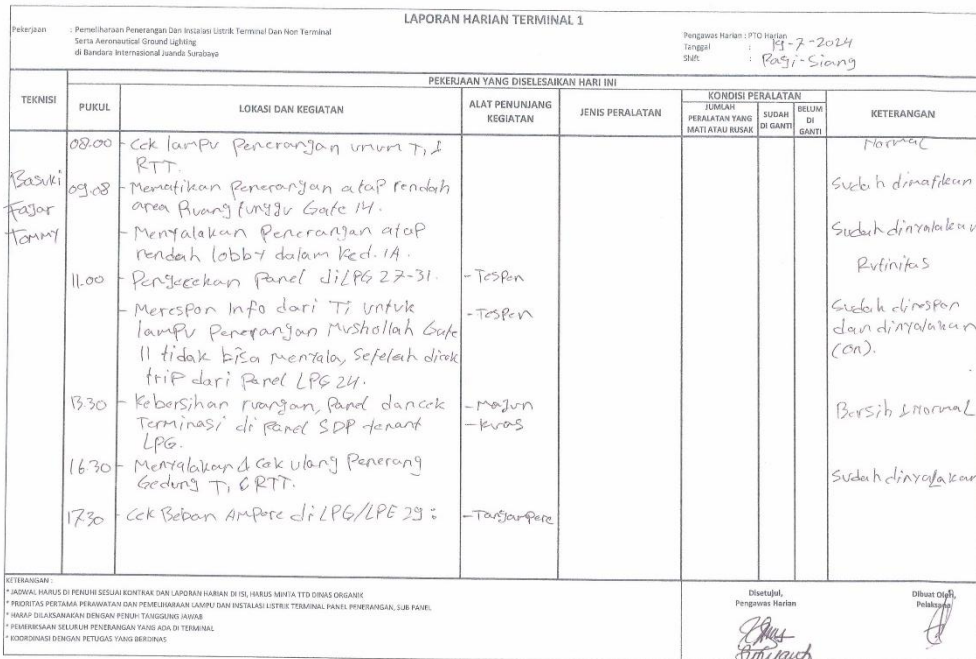 LAPORAN HARIAN TERMINAL 1
Pekerjaan : Pemeliharaan Penerangan Dan Instalasi Listrik Terminal Dan Non Terminal
Serta Aeronautical Ground Lighting
di Bandara Internasional Juanda Surabaya
Pengawas Harian : PTO Harian
Tanggal : 19-7-2024
Shift : Pagi-Siang
PEKERJAAN YANG DISELESAIKAN HARI INI
TEKNISI
PUKUL
LOKASI DAN KEGIATAN
ALAT PENUNJANG KEGIATAN
JENIS PERALATAN
KONDISI PERALATAN
JUMLAH PERALATAN YANG MATI ATAU RUSAK
SUDAH DI GANTI
BELUM DI GANTI
KETERANGAN
Basuki
Fajar
Tommy
08.00 - Cek lampu Penerangan umum T1 &
RTT.
Normal
09.08 - Mematikan Penerangan atap rendah
area Ruang tunggu Gate 14.
Sudah dimatikan
- Menyalakan Penerangan atap
rendah lobby dalam Ked. 1A.
Sudah dinyalakan
11.00 - Pengecekan Panel di LPG 27-31.
- Tespen
Rutinitas
- Merespon Info dari T1 untuk
lampu Penerangan Mushollah Gate
11 tidak bisa menyala, Setelah dicek
trip dari Panel LPG 24.
- Tespen
Sudah direspon
dan dinyalakan
(on).
13.30 - Kebersihan ruangan, Panel dan cek
Terminasi di Panel SDP tenant
LPG.
- Majun
- kuas
Bersih & Normal
16.30 - Menyalakan & Cek ulang Penerang
Gedung T1 & RTT.
Sudah dinyalakan
17.30 - Cek Beban Ampere di LPG/LPE 29 :
- Tangampere
KETERANGAN :
* JADWAL HARUS DI PENUHI SESUAI KONTRAK DAN LAPORAN HARIAN DI ISI, HARUS MINTA TTD DINAS ORGANIK
* PRIORITAS PERTAMA PERAWATAN DAN PEMELIHARAAN LAMPU DAN INSTALASI LISTRIK TERMINAL PANEL PENERANGAN, SUB PANEL
* HARAP DILAKSANAKAN DENGAN PENUH TANGGUNG JAWAB
* PEMERIKSAAN SELURUH PENERANGAN YANG ADA DI TERMINAL
* KOORDINASI DENGAN PETUGAS YANG BERDINAS
Disetujui,
Pengawas Harian
Dibuat Oleh,
Pelaksana